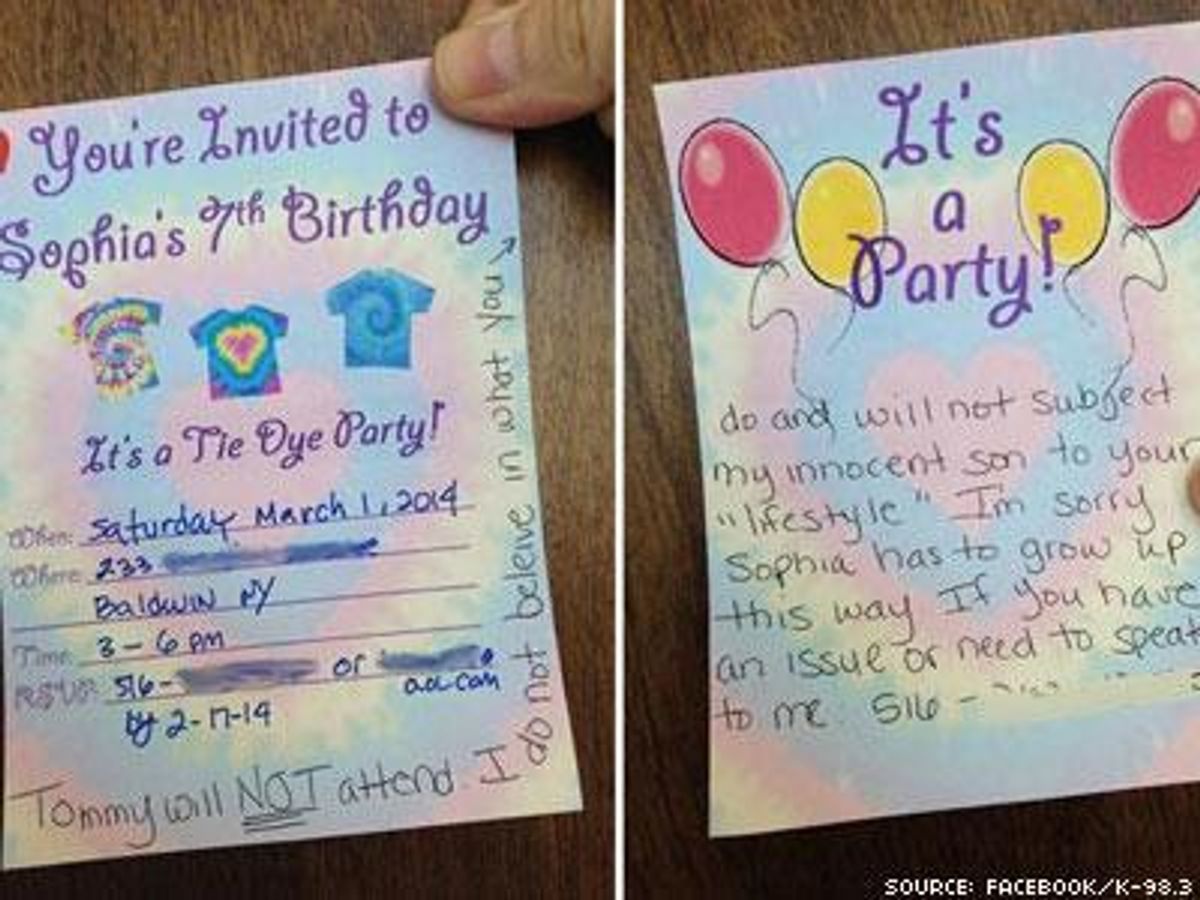 You're Invited to
Sophia's 7th Birthday
It's a Tie Dye Party!
When: Saturday March 1, 2014
Where: 233
Baldwin NY
Time: 3 - 6 pm
RSVP: 516- or
aol.com
by 2-17-14
Tommy will NOT attend. I
do not beleive in what you
It's
a
Party!
do and will not subject
my innocent son to your
"lifestyle" I'm sorry
Sophia has to grow up
this way If you have
an issue or need to speak
to me 516 -
SOURCE: FACEBOOK/K-98.3